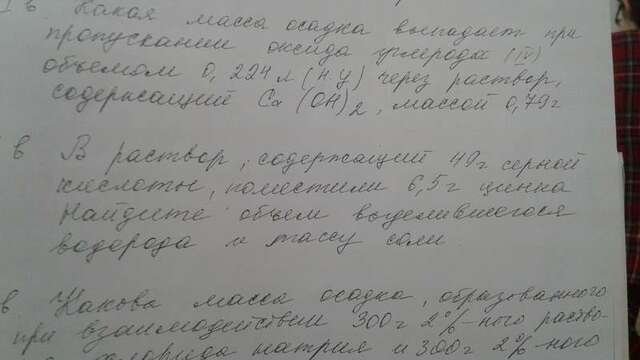 I в Какая масса осадка выпадает при
пропускании оксида углерода (IV)
объемом 0,224 л (н.у) через раствор,
содержащий Ca(OH)2, массой 0,79г
в В раствор, содержащий 49г серной
кислоты, поместили 6,5г цинка
Найдите объем выделившегося
водорода и массу соли
в Какова масса осадка, образованного
при взаимодействии 300г 2%-ного раство-
хлорида натрия и 300г 2%-ного